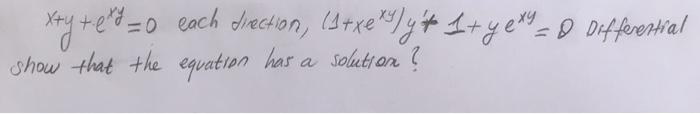 x+y+e^{xy}=0 each direction, (1+xe^{xy})y'+1+ye^{xy}=0 Differential
show that the equation has a solution?